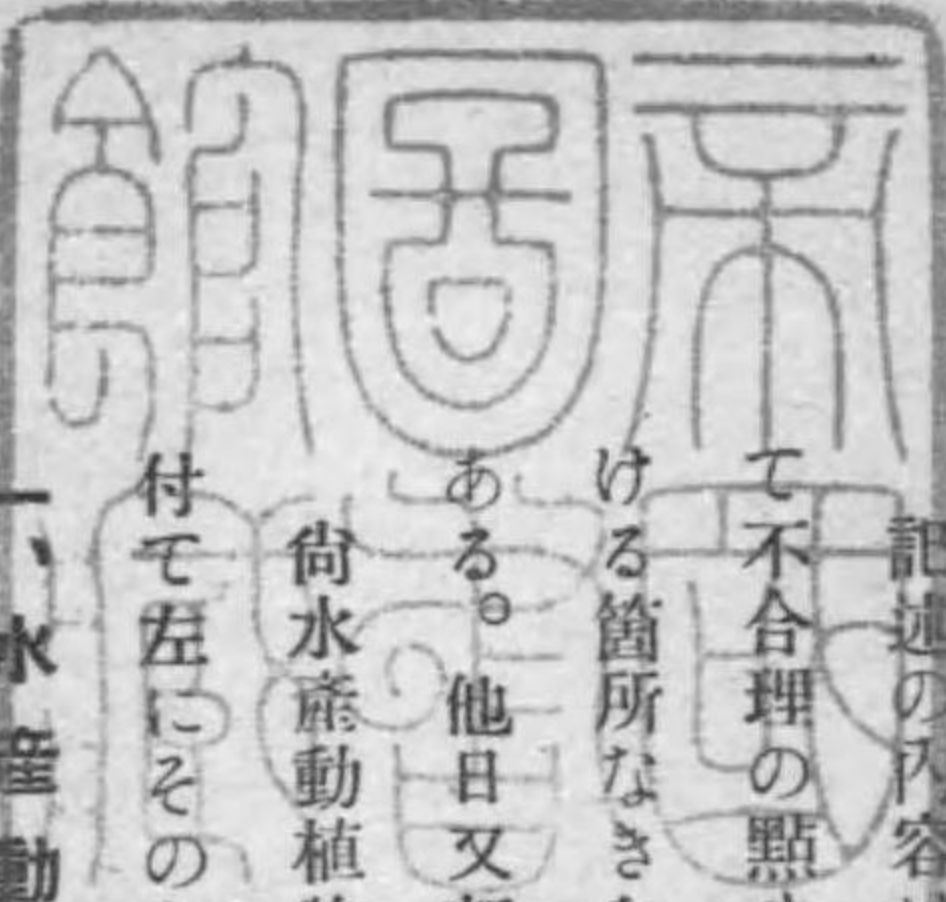 記述の内容
て不合理の點
ける箇所なき
ある。他日又
尙水産動植
付て左にその
一、水産動
帝圖館